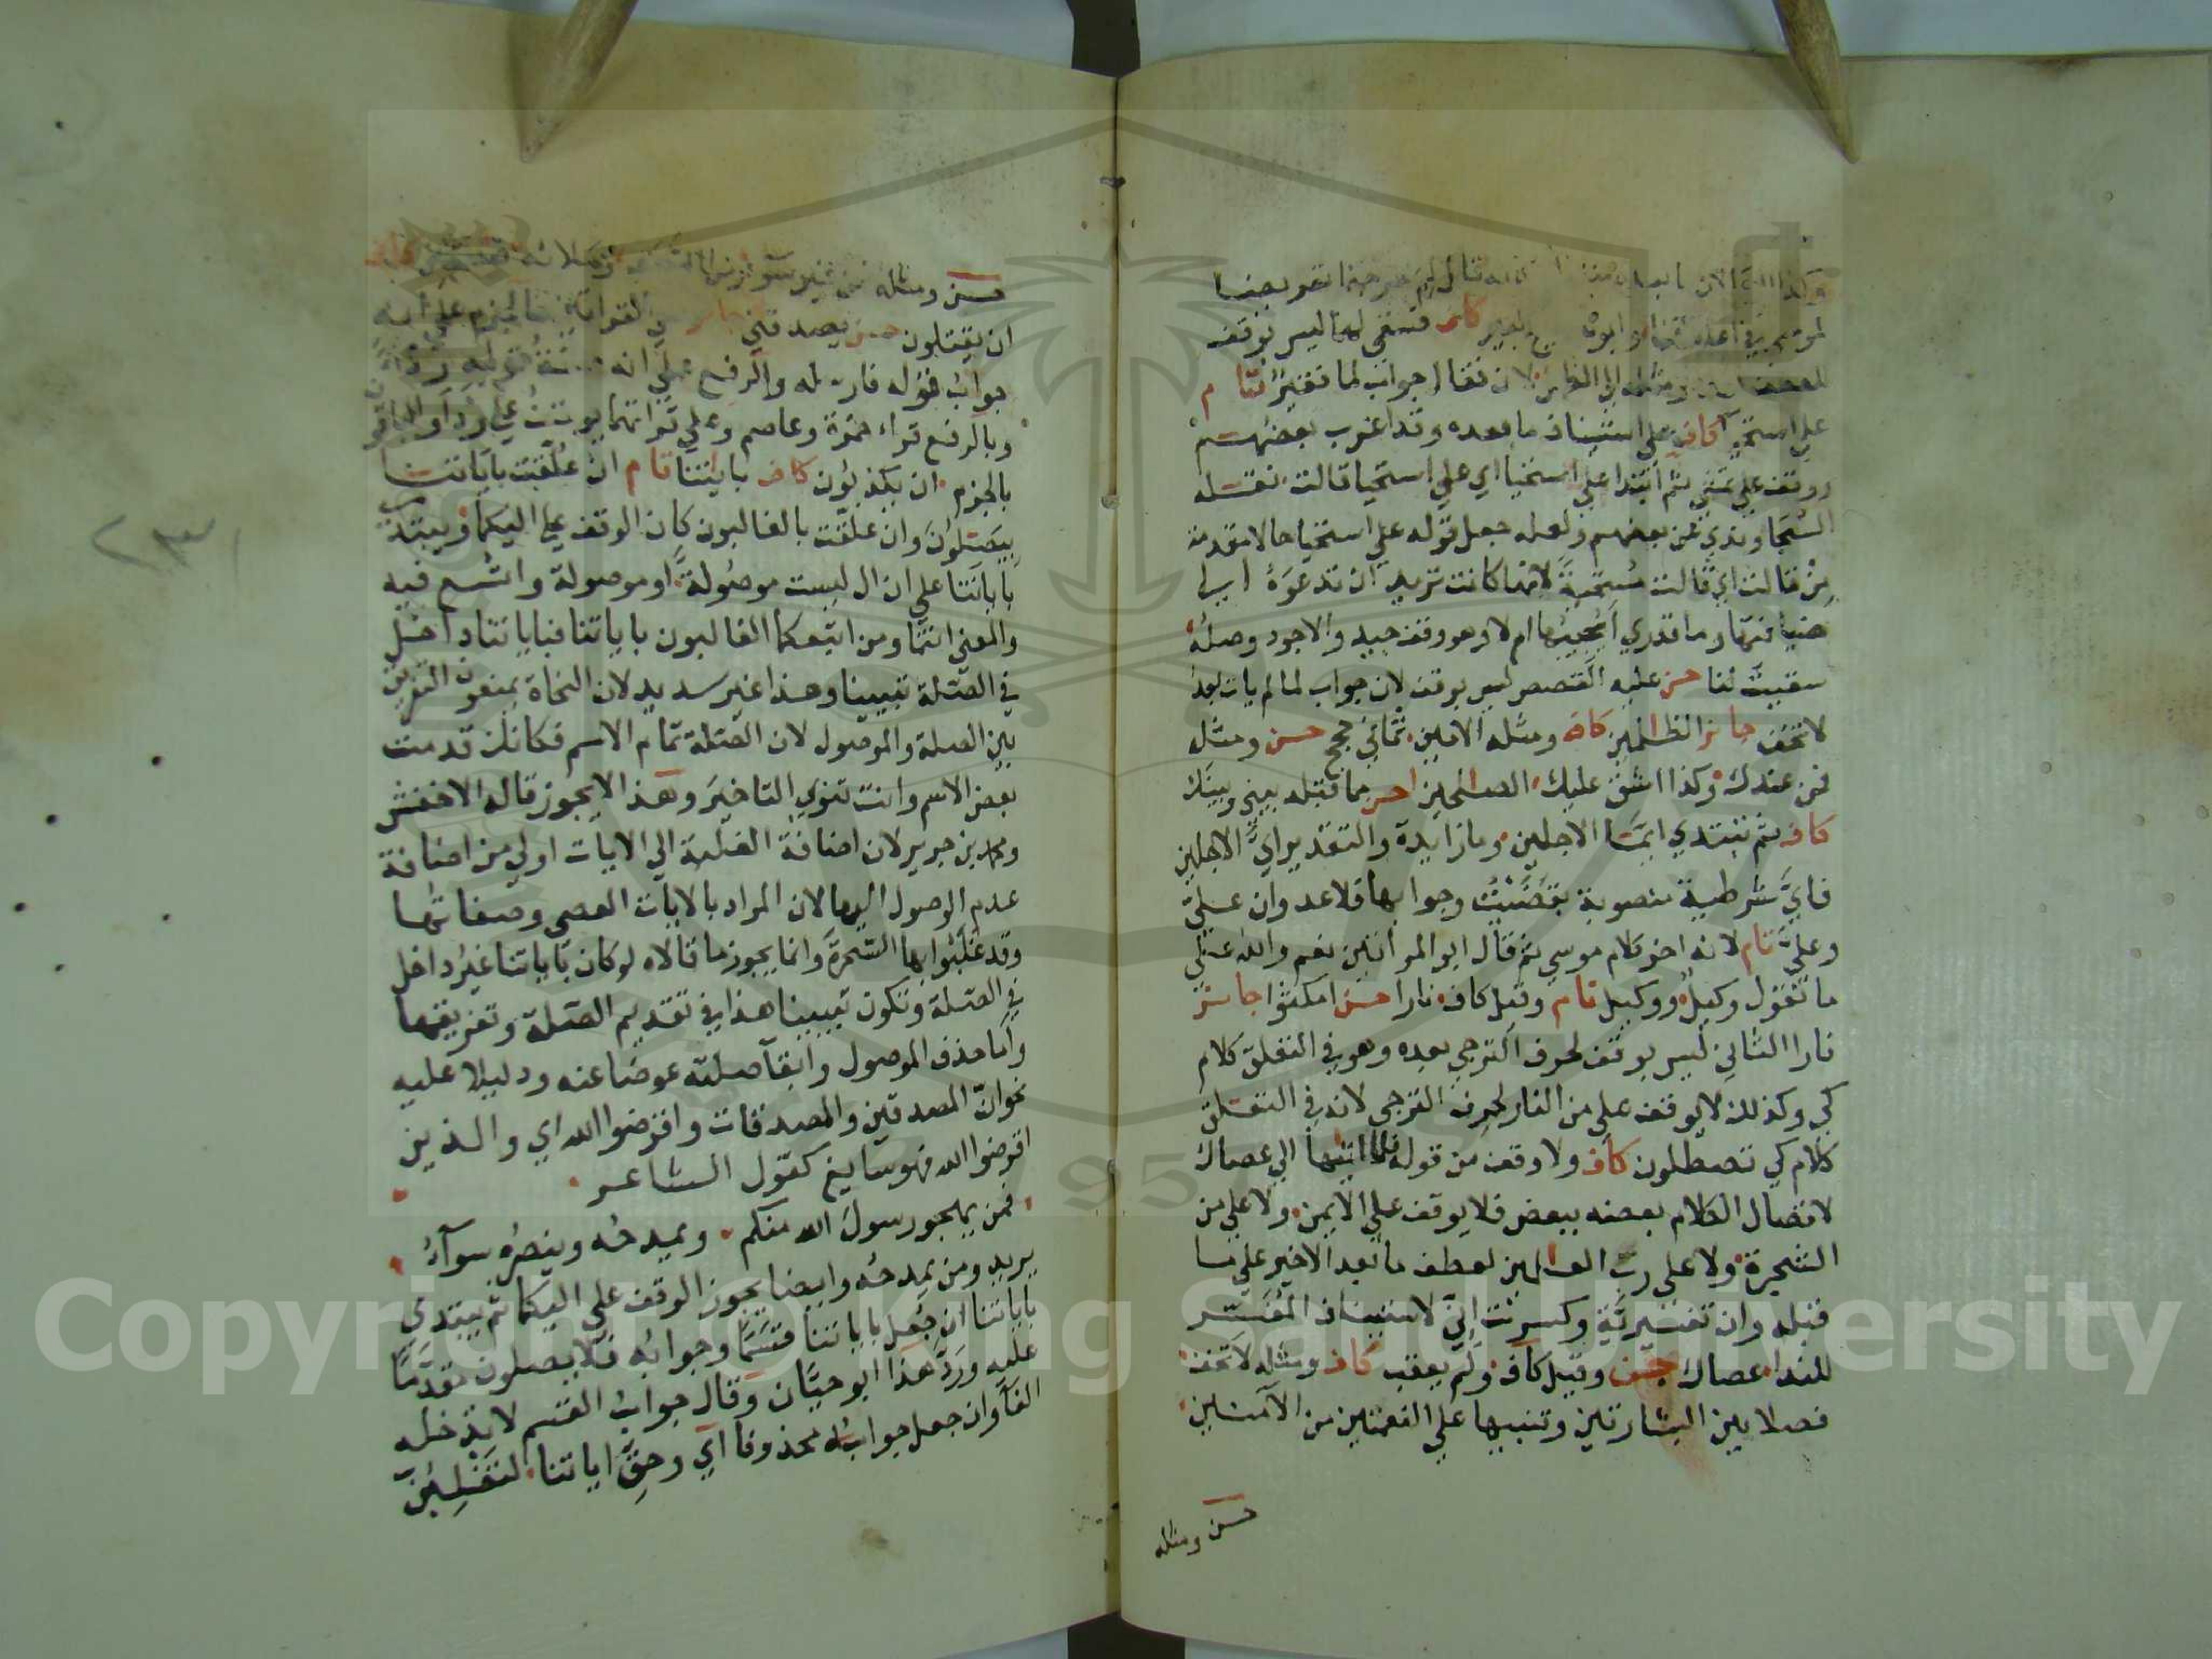 لموتجبين
كاف فسقى لهما ليس بوقف
لان فقال جواب لما فقير تام
على استحيا كاف على استئناف ما بعده وقد اغرب بعضهم
ووقف على تمشي ثم ابتدا على استحيا اي على استحيا قالت نقله
السجاوندي عن بعضهم ولعله جعل قوله على استحيا حالا مقدمة
من قالت اي قالت مستحية لانها كانت تريد ان تدعوه الى
ضيافتها وما تدري أيجيبها ام لا وهو وقف جيد والاجود وصله
سقيت لنا حسن عليه القصص ليس بوقف لان جواب لما لم يات بعد
لا تخف جائز الظالمين كاف ومثله الامين ثماني حجج حسن ومثله
فمن عندك وكذا اشق عليك الصالحين احسن مما قبله بيني وبينك
كاف ثم تبتدي ايما الاجلين وما زايدة والتقدير اي الاجلين
فاي شرطية منصوبة بقضيت وجوابها فلا عدوان علي
وعلي تام لانه اخر كلام موسى ثم قال ابو المرأتين نعم والله على
ما نقول وكيل ووكيل تام وقيل كاف نارا حسن امكثوا جائز
نارا الثاني ليس بوقف لحرف الترجي بعده وهو في التعلق كلام
كي وكذلك لا يوقف على من النار لحرف الترجي لانه في التعلق
كلام كي تصطلون كاف ولا وقف من قوله فلما اتيها الى عصاك
لاتصال الكلام بعضه ببعض فلا يوقف على الايمن ولا على من
الشجرة ولا على رب العالمين لعطف ما بعد الاخير على ما
قبله وان تفسيرية وكسرت اني لاستيناف المفسر
للندا عصاك حسن وقيل كاف ولم يعقب كاف ومثله لا تخف
فصلا بين البشارتين وتنبيها على النعمتين من الآمنين
حسن ومثله
حسن ومثله من غير سوء
ان يقتلون حسن يصدقني
جواب قوله فارسله والرفع على انه صفة قوله ردءا
وبالرفع قراء حمزة وعاصم وعلى قراتهما يوقف على ردءا والباقون
بالجزم ان يكذبون كاف باياتنا تام ان علقت باياتنا
بيصلون وان علقت بالغالبون كان الوقف على اليكما ويبتدي
باياتنا على ان ال ليست موصولة او موصولة واتسع فيه
والمعنى انتما ومن اتبعكما الغالبون باياتنا فباياتنا داخل
في الصلة تبيينا وهذا غير سديد لان النحاة يمنعون التفريق
بين الصلة والموصول لان الصلة تمام الاسم فكانك قدمت
بعض الاسم وانت تنوي التاخير وهذا لا يجوز قاله الاخفش
ومحمد بن جرير لان اضافة الغلبة الى الايات اولى من اضافة
عدم الوصول اليها لان المراد بالايات العصى وصفاتها
وقد غلبوا بها السحرة وانما يجوز ما قالاه لو كان باياتنا غير داخل
في الصلة وتكون تبيينا هذا في تقديم الصلة وتفريقها
واما حذف الموصول وابقآ صلته عوضا عنه ودليلا عليه
نحو ان المصدقين والمصدقات واقرضوا الله اي والذين
اقرضوا الله فهو سايغ كقول الشاعر
فمن يهجو رسول الله منكم ويمدحه وينصره سوآء
يريد ومن يمدحه وايضا يجوز الوقف على اليكما ثم يبتدي
باياتنا ان جعل باياتنا قسما وجوابه فلا يصلون مقدما
عليه ورد هذا ابو حيان وقال جواب القسم لا تدخله
الفا وان جعل جوابه محذوفا اي وحق اياتنا لتغلبن
Copyright © King Saud University
1957